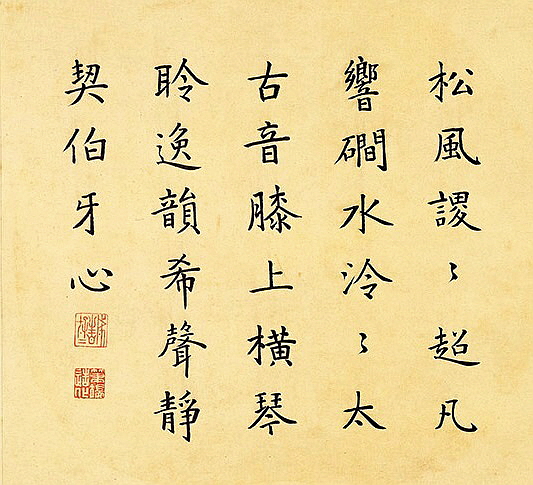 松風謖〻超凡
響磵水泠〻太
古音膝上橫琴
聆逸韻希聲靜
契伯牙心